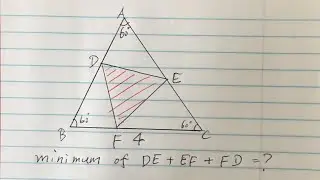 A
60°
D
E
B 60° F 4 60° C
minimum of DE + EF + FD = ?